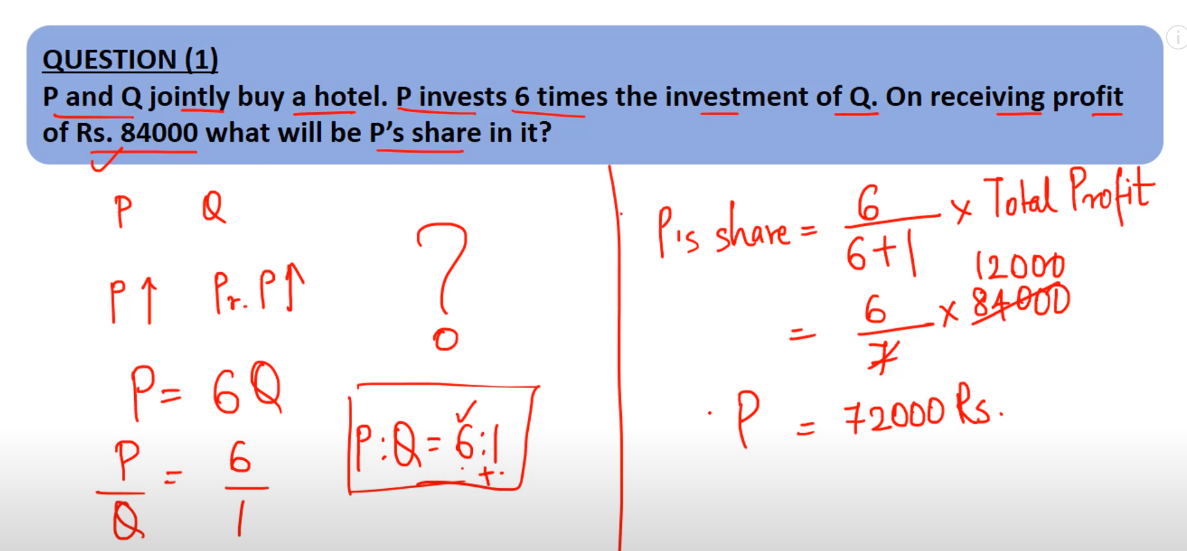 QUESTION (1)
P and Q jointly buy a hotel. P invests 6 times the investment of Q. On receiving profit
of Rs. 84000 what will be P's share in it?
P Q
P↑ Pr. P↑
?
P = 6Q
P/Q = 6/1
P:Q = 6:1
+
P's share = 6/6+1 x Total Profit
12000
= 6/7 x 84000
P = 72000 Rs.